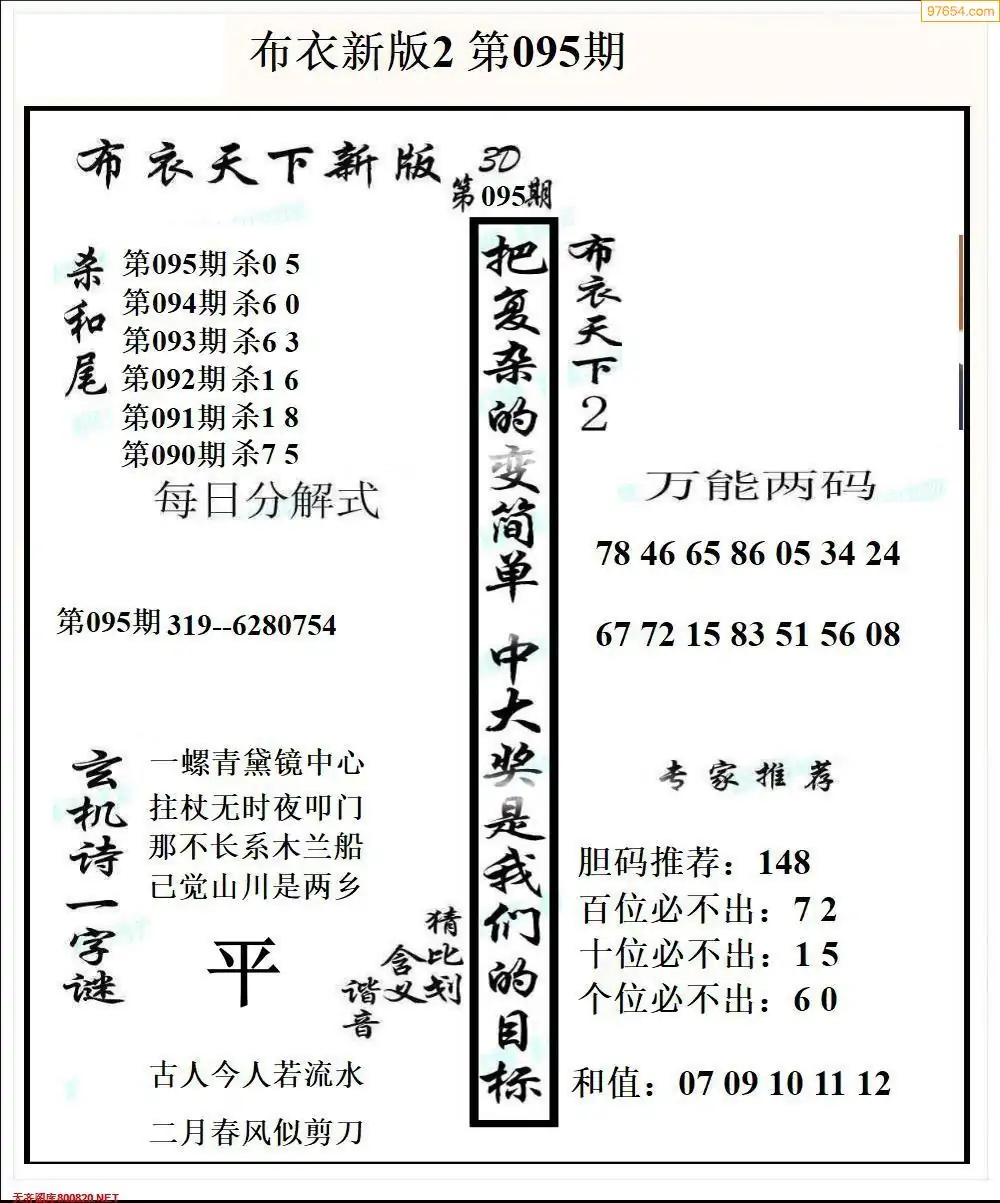 97654.com
布衣新版2 第095期
布衣天下新版
3D
第095期
杀和尾
第095期杀0 5
第094期杀6 0
第093期杀6 3
第092期杀1 6
第091期杀1 8
第090期杀7 5
每日分解式
第095期 319--6280754
玄机诗一字谜
一螺青黛镜中心
拄杖无时夜叩门
那不长系木兰船
己觉山川是两乡
平
猜比划
含义
谐音
古人今人若流水
二月春风似剪刀
把复杂的变简单 中大奖是我们的目标
布衣天下2
万能两码
78 46 65 86 05 34 24
67 72 15 83 51 56 08
专家推荐
胆码推荐：148
百位必不出：7 2
十位必不出：1 5
个位必不出：6 0
和值：07 09 10 11 12
天齐图库800820.NET